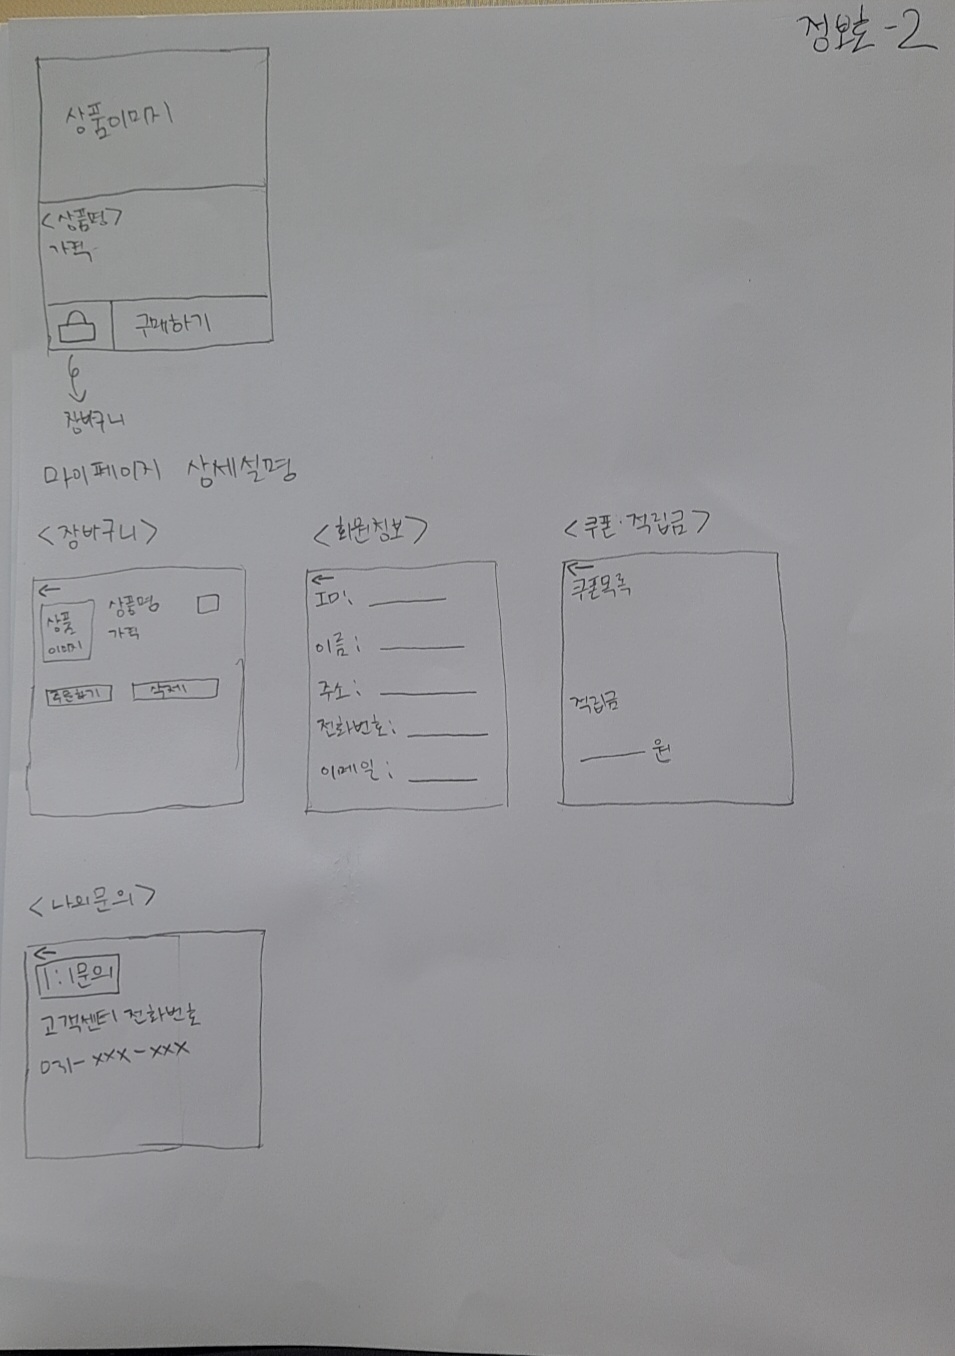 정보호-2
상품이미지
<상품명>
가격
구매하기
장바구니
마이페이지 상세설명
<장바구니>
상품
이미지
상품명
가격
주문하기 삭제
<회원정보>
ID:
이름:
주소:
전화번호:
이메일:
<쿠폰·적립금>
쿠폰목록
적립금
원
<나의문의>
1:1문의
고객센터 전화번호
031-xxx-xxx